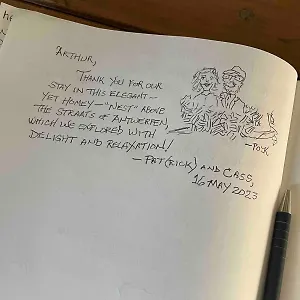 ARTHUR,
THANK YOU FOR OUR
STAY IN THIS ELEGANT—
YET HOMEY—"NEST" ABOVE
THE STRAATS OF ANTWERPEN,
WHICH WE EXPLORED WITH
DELIGHT AND RELAXATION!
—PAT(RICK) AND CASS,
16 MAY 2023